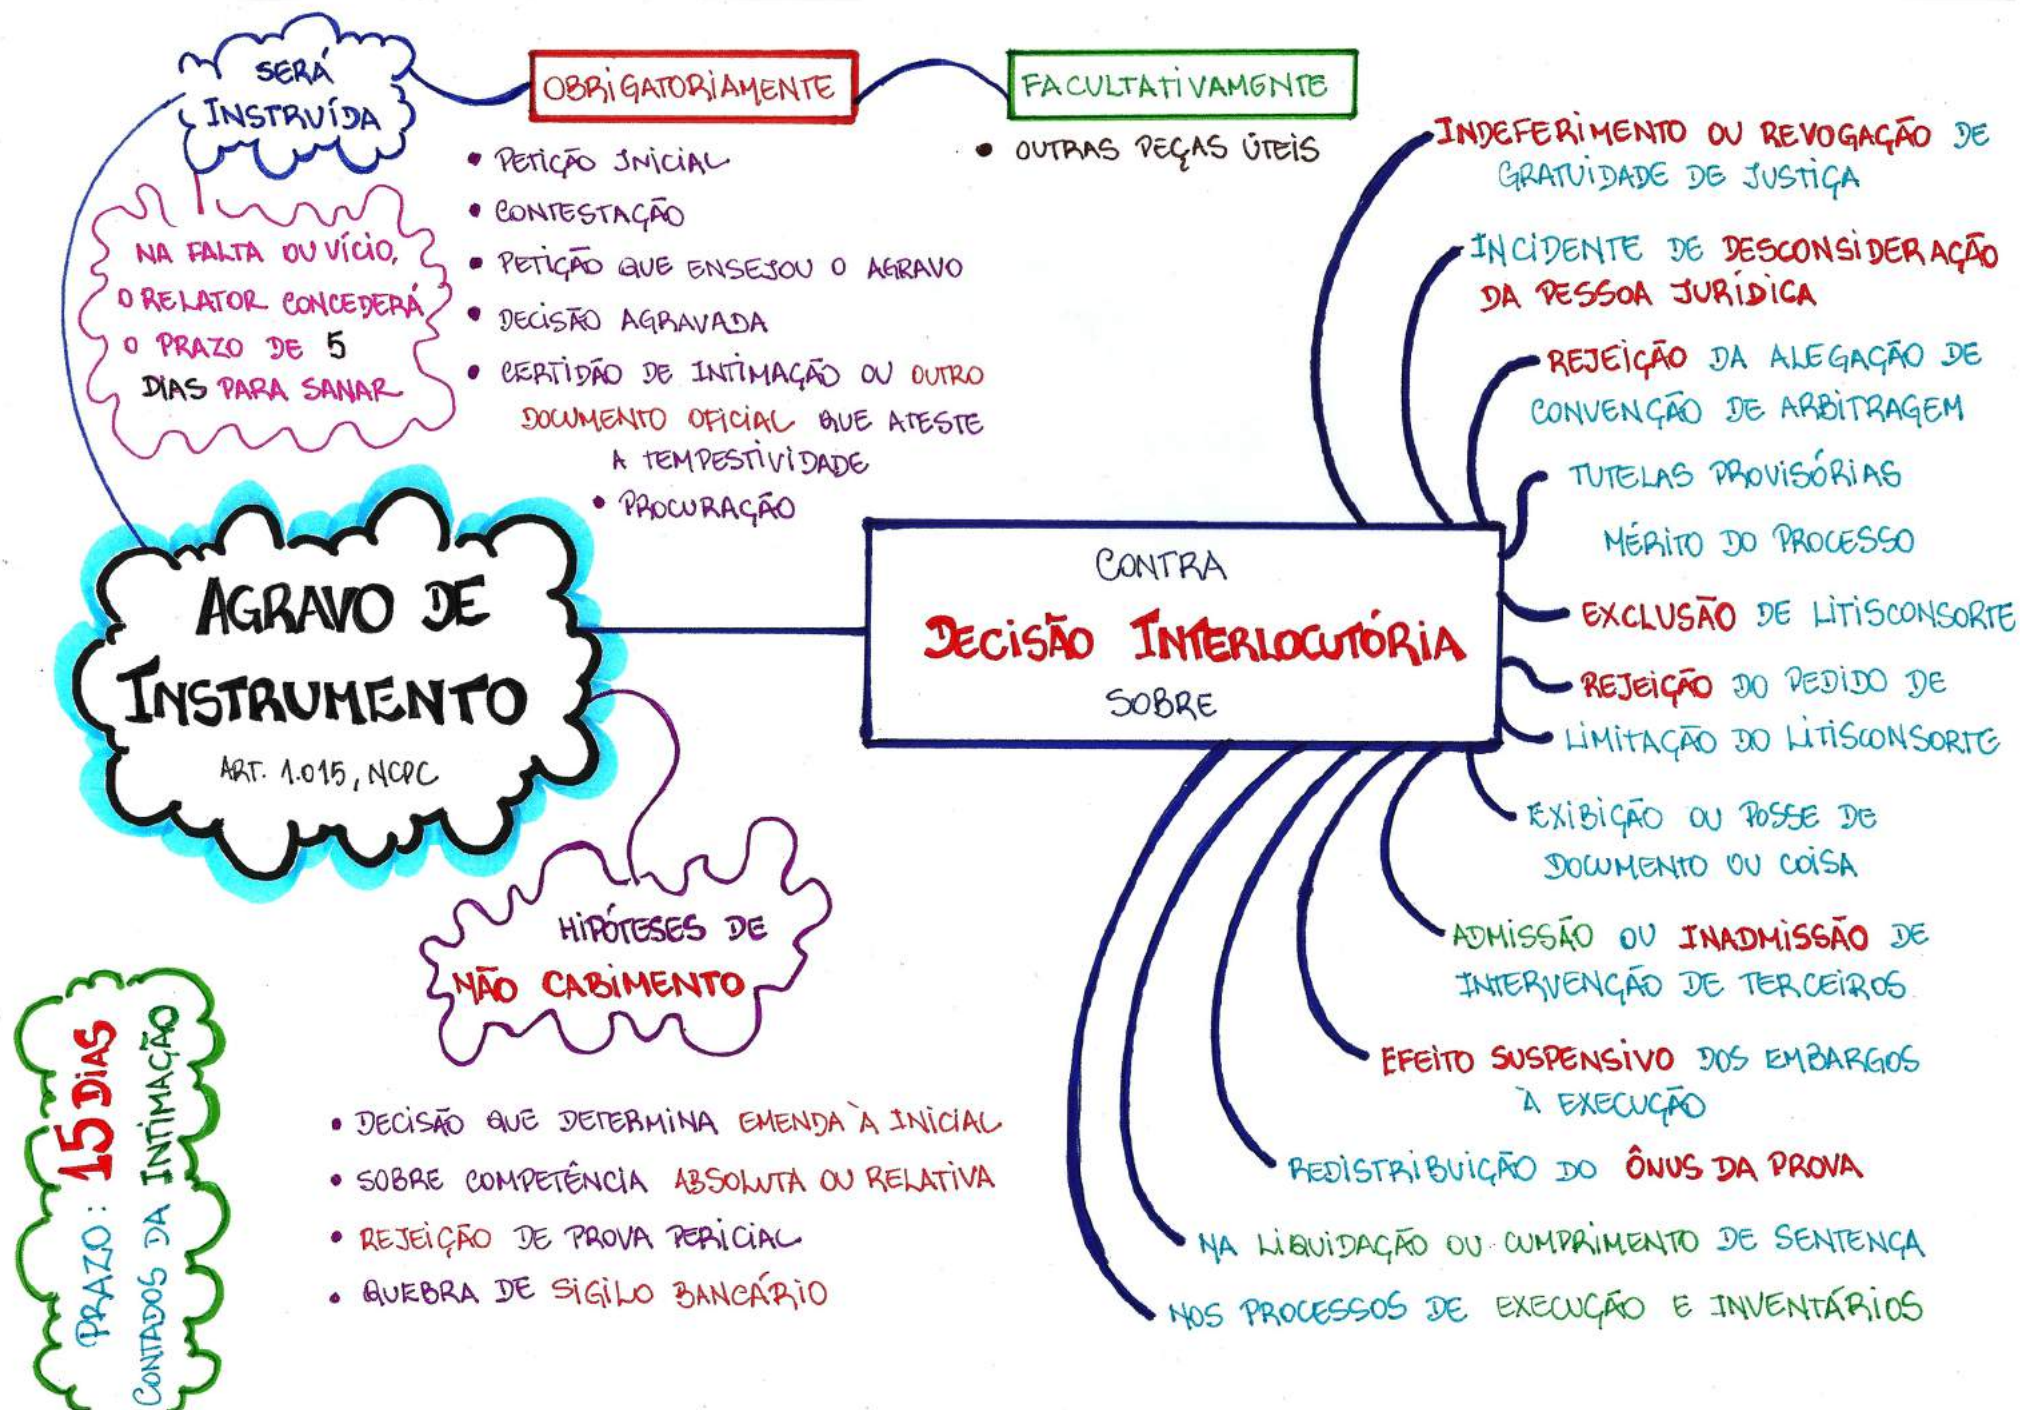 SERÁ
INSTRUÍDA
OBRIGATORIAMENTE
FACULTATIVAMENTE
• PETIÇÃO INICIAL
• CONTESTAÇÃO
• PETIÇÃO QUE ENSEJOU O AGRAVO
• DECISÃO AGRAVADA
• CERTIDÃO DE INTIMAÇÃO OU OUTRO
DOCUMENTO OFICIAL QUE ATESTE
A TEMPESTIVIDADE
• PROCURAÇÃO
• OUTRAS PEÇAS ÚTEIS
NA FALTA OU VÍCIO,
O RELATOR CONCEDERÁ
O PRAZO DE 5
DIAS PARA SANAR
AGRAVO DE
INSTRUMENTO
ART. 1.015, NCPC
CONTRA
DECISÃO INTERLOCUTÓRIA
SOBRE
INDEFERIMENTO OU REVOGAÇÃO DE
GRATUIDADE DE JUSTIÇA
INCIDENTE DE DESCONSIDERAÇÃO
DA PESSOA JURÍDICA
REJEIÇÃO DA ALEGAÇÃO DE
CONVENÇÃO DE ARBITRAGEM
TUTELAS PROVISÓRIAS
MÉRITO DO PROCESSO
EXCLUSÃO DE LITISCONSORTE
REJEIÇÃO DO PEDIDO DE
LIMITAÇÃO DO LITISCONSORTE
EXIBIÇÃO OU POSSE DE
DOCUMENTO OU COISA
ADMISSÃO OU INADMISSÃO DE
INTERVENÇÃO DE TERCEIROS
EFEITO SUSPENSIVO DOS EMBARGOS
À EXECUÇÃO
REDISTRIBUIÇÃO DO ÔNUS DA PROVA
NA LIQUIDAÇÃO OU CUMPRIMENTO DE SENTENÇA
NOS PROCESSOS DE EXECUÇÃO E INVENTÁRIOS
HIPÓTESES DE
NÃO CABIMENTO
• DECISÃO QUE DETERMINA EMENDA À INICIAL
• SOBRE COMPETÊNCIA ABSOLUTA OU RELATIVA
• REJEIÇÃO DE PROVA PERICIAL
• QUEBRA DE SIGILO BANCÁRIO
PRAZO: 15 DIAS
CONTADOS DA INTIMAÇÃO